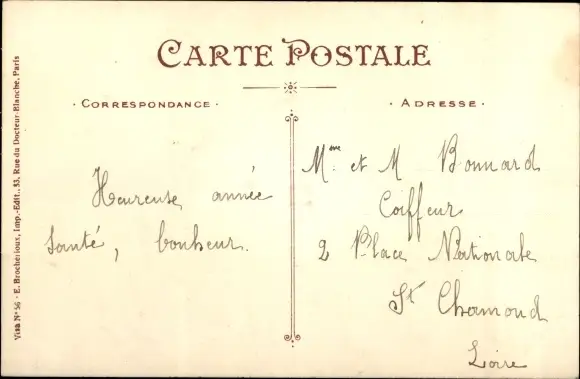 CARTE POSTALE
· CORRESPONDANCE ·
· ADRESSE ·
Heureuse année
Santé, bonheur.
Mme et M Bonnard
Coiffeur
2 Place Nationale
St Chamond
Loire
Visa N° 56 - E. Brocherioux, Imp.-Édit., 53, Rue du Docteur-Blanche, Paris